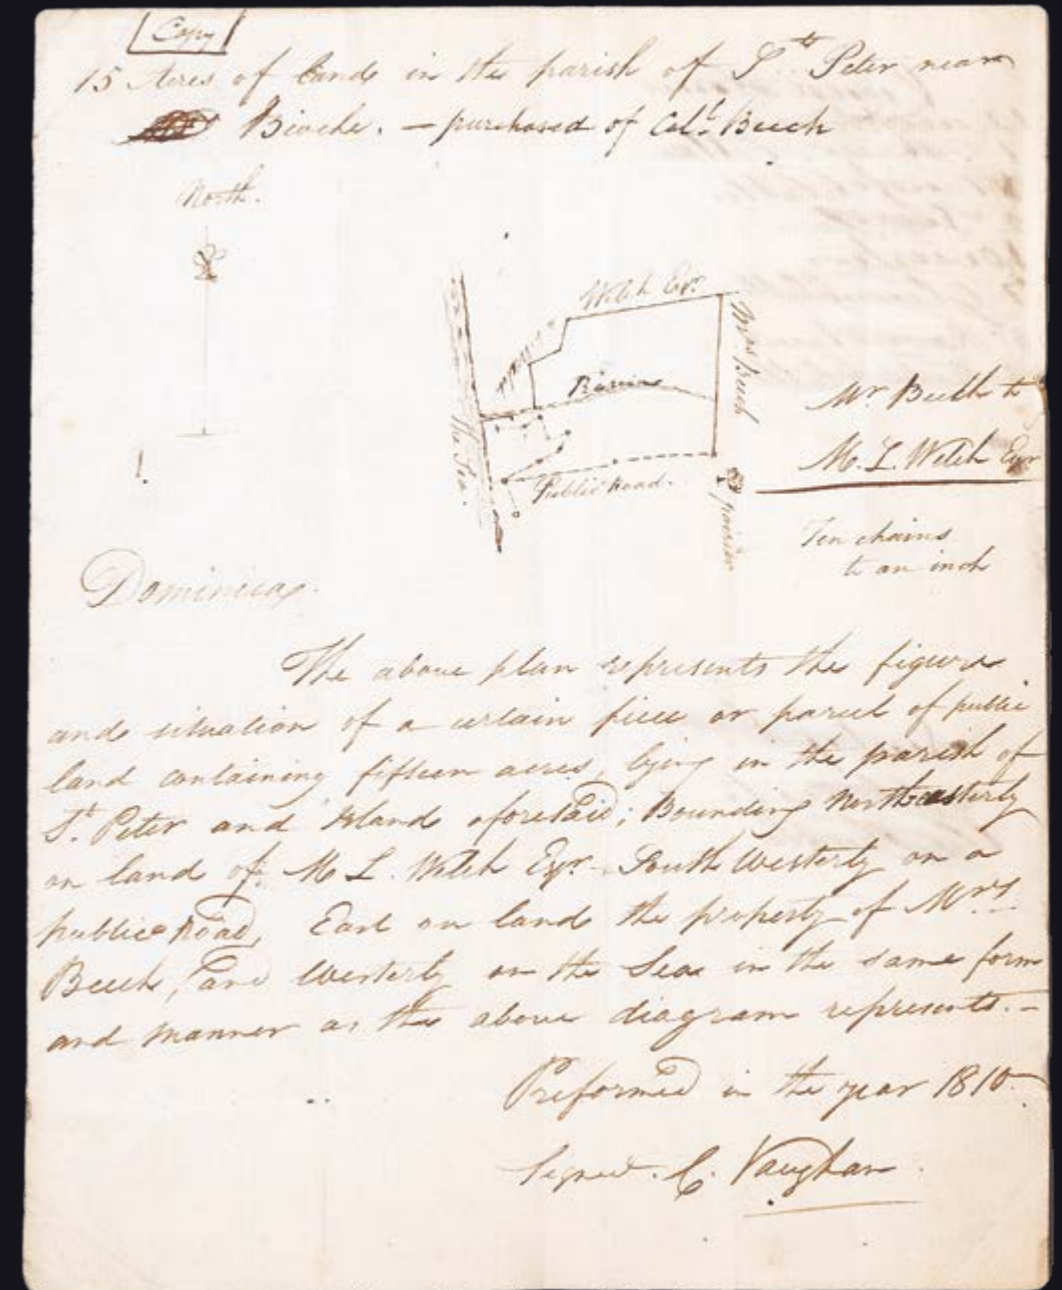 Copy
15 Acres of Land in the parish of St. Peter near
Bioche. – purchased of Coll. Beech
North.
Welch Esqr.
Mrs Beech
Ravine
The Sea.
Public Road.
Mr. Beech to
M. L. Welch Esqr
Ten chains
to an inch
Dominica.
The above plan represents the figure
and situation of a certain piece or parcel of public
land containing fifteen acres, lying in the parish of
St. Peter and Island aforesaid; Bounding Northeasterly
on land of M L. Welch Esqr. South Westerly on a
public Road, East on land the property of Mrs.
Beech, and Westerly on the Sea in the same form
and manner as the above diagram represents. –
Preformed in the year 1810
Signed. C. Vaughan